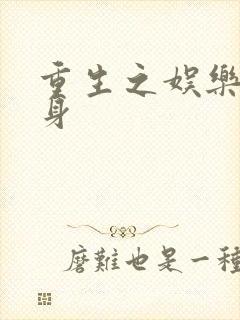 重生之娱樂
身
磨難也是一種